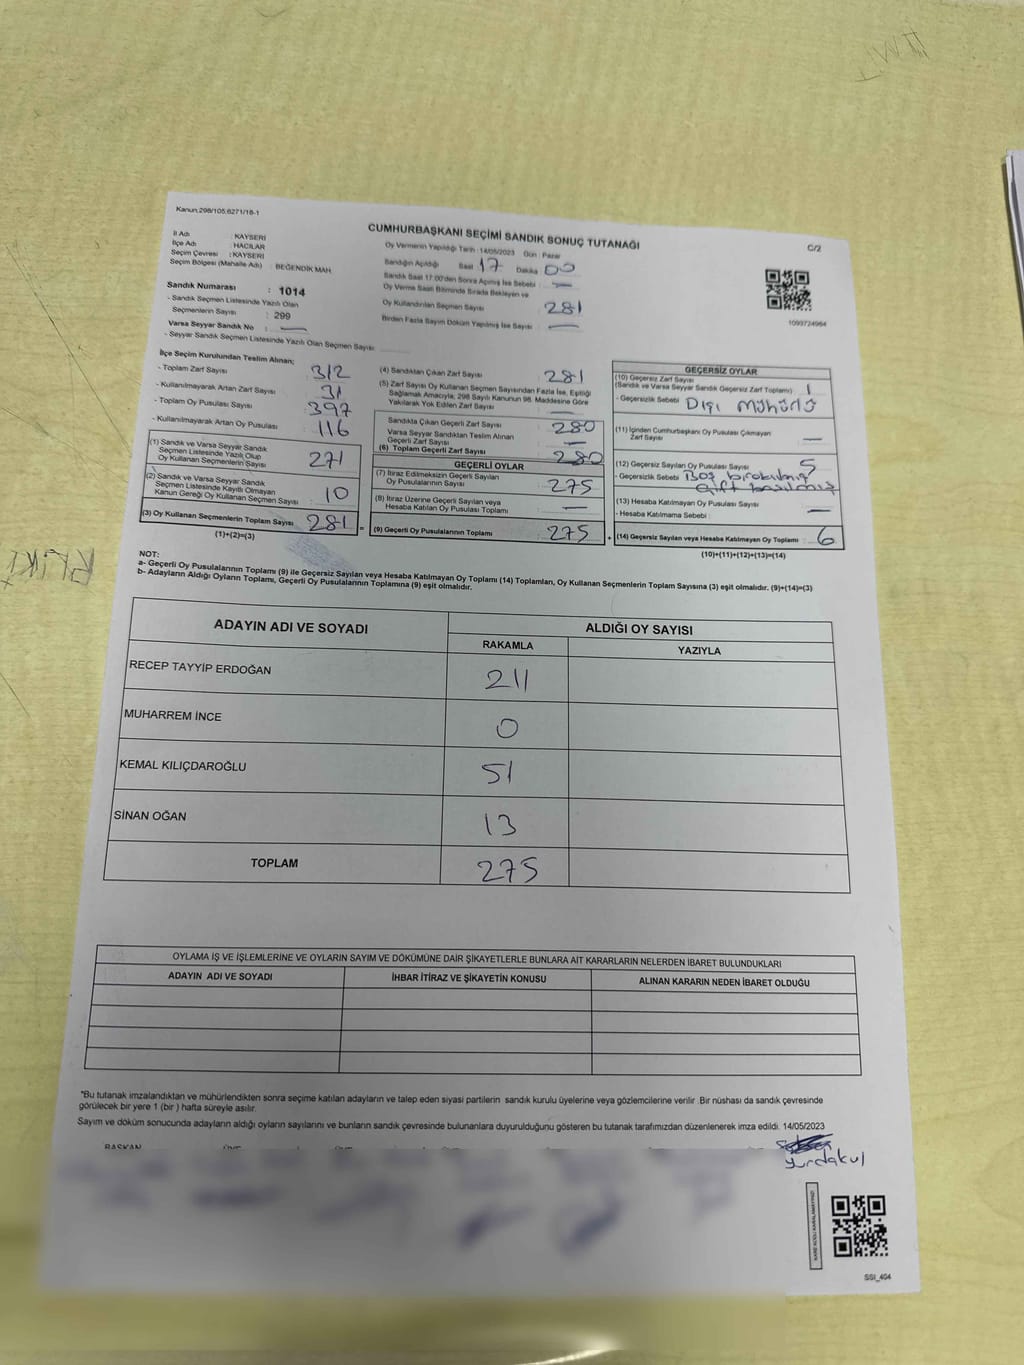 Kanun:298/105,6271/18-1
CUMHURBAŞKANI SEÇİMİ SANDIK SONUÇ TUTANAĞI
C/2
İl Adı : KAYSERİ
İlçe Adı : HACILAR
Seçim Çevresi : KAYSERİ
Seçim Bölgesi (Mahalle Adı) : BEĞENDİK MAH.
Oy Vermenin Yapıldığı Tarih : 14/05/2023 Gün : Pazar
Sandığın Açıldığı Saat 17 Dakika 00
Sandık Saat 17:00'den Sonra Açılmış İse Sebebi : —
Oy Verme Saati Bitiminde Sırada Bekleyen ve
Oy Kullandırılan Seçmen Sayısı 281
Birden Fazla Sayım Döküm Yapılmış İse Sayısı : —
1093724984
Sandık Numarası : 1014
- Sandık Seçmen Listesinde Yazılı Olan
Seçmenlerin Sayısı : 299
Varsa Seyyar Sandık No : —
- Seyyar Sandık Seçmen Listesinde Yazılı Olan Seçmen Sayısı :
İlçe Seçim Kurulundan Teslim Alınan;
- Toplam Zarf Sayısı 312
- Kullanılmayarak Artan Zarf Sayısı 31
- Toplam Oy Pusulası Sayısı 397
- Kullanılmayarak Artan Oy Pusulası 116
(1) Sandık ve Varsa Seyyar Sandık
Seçmen Listesinde Yazılı Olup
Oy Kullanan Seçmenlerin Sayısı 271
(2) Sandık ve Varsa Seyyar Sandık
Seçmen Listesinde Kayıtlı Olmayan
Kanun Gereği Oy Kullanan Seçmen Sayısı 10
(3) Oy Kullanan Seçmenlerin Toplam Sayısı 281
(1)+(2)=(3)
(4) Sandıktan Çıkan Zarf Sayısı 281
(5) Zarf Sayısı Oy Kullanan Seçmen Sayısından Fazla İse, Eşitliği
Sağlamak Amacıyla, 298 Sayılı Kanunun 98. Maddesine Göre
Yakılarak Yok Edilen Zarf Sayısı —
Sandıkta Çıkan Geçerli Zarf Sayısı 280
Varsa Seyyar Sandıktan Teslim Alınan
Geçerli Zarf Sayısı —
(6) Toplam Geçerli Zarf Sayısı 280
GEÇERLİ OYLAR
(7) İtiraz Edilmeksizin Geçerli Sayılan
Oy Pusulalarının Sayısı 275
(8) İtiraz Üzerine Geçerli Sayılan veya
Hesaba Katılan Oy Pusulası Toplamı —
= (9) Geçerli Oy Pusulalarının Toplamı 275
GEÇERSİZ OYLAR
(10) Geçersiz Zarf Sayısı
(Sandık ve Varsa Seyyar Sandık Geçersiz Zarf Toplamı) 1
- Geçersizlik Sebebi : Dışı mühürlü
(11) İçinden Cumhurbaşkanı Oy Pusulası Çıkmayan
Zarf Sayısı —
(12) Geçersiz Sayılan Oy Pusulası Sayısı 5
- Geçersizlik Sebebi : Boş bırakılmış
Çift basılmış
(13) Hesaba Katılmayan Oy Pusulası Sayısı
- Hesaba Katılmama Sebebi : —
+ (14) Geçersiz Sayılan veya Hesaba Katılmayan Oy Toplamı : 6
(10)+(11)+(12)+(13)=(14)
NOT:
a- Geçerli Oy Pusulalarının Toplamı (9) ile Geçersiz Sayılan veya Hesaba Katılmayan Oy Toplamı (14) Toplamları, Oy Kullanan Seçmenlerin Toplam Sayısına (3) eşit olmalıdır. (9)+(14)=(3)
b- Adayların Aldığı Oyların Toplamı, Geçerli Oy Pusulalarının Toplamına (9) eşit olmalıdır.
ADAYIN ADI VE SOYADI ALDIĞI OY SAYISI
RAKAMLA YAZIYLA
RECEP TAYYİP ERDOĞAN 211
MUHARREM İNCE 0
KEMAL KILIÇDAROĞLU 51
SİNAN OĞAN 13
TOPLAM 275
OYLAMA İŞ VE İŞLEMLERİNE VE OYLARIN SAYIM VE DÖKÜMÜNE DAİR ŞİKAYETLERLE BUNLARA AİT KARARLARIN NELERDEN İBARET BULUNDUKLARI
ADAYIN ADI VE SOYADI İHBAR İTİRAZ VE ŞİKAYETİN KONUSU ALINAN KARARIN NEDEN İBARET OLDUĞU
*Bu tutanak imzalandıktan ve mühürlendikten sonra seçime katılan adayların ve talep eden siyasi partilerin sandık kurulu üyelerine veya gözlemcilerine verilir .Bir nüshası da sandık çevresinde
görülecek bir yere 1 (bir ) hafta süreyle asılır.
Sayım ve döküm sonucunda adayların aldığı oyların sayılarını ve bunların sandık çevresinde bulunanlara duyurulduğunu gösteren bu tutanak tarafımızdan düzenlenerek imza edildi. 14/05/2023
BAŞKAN ÜYE
yurdakul
SSI_404